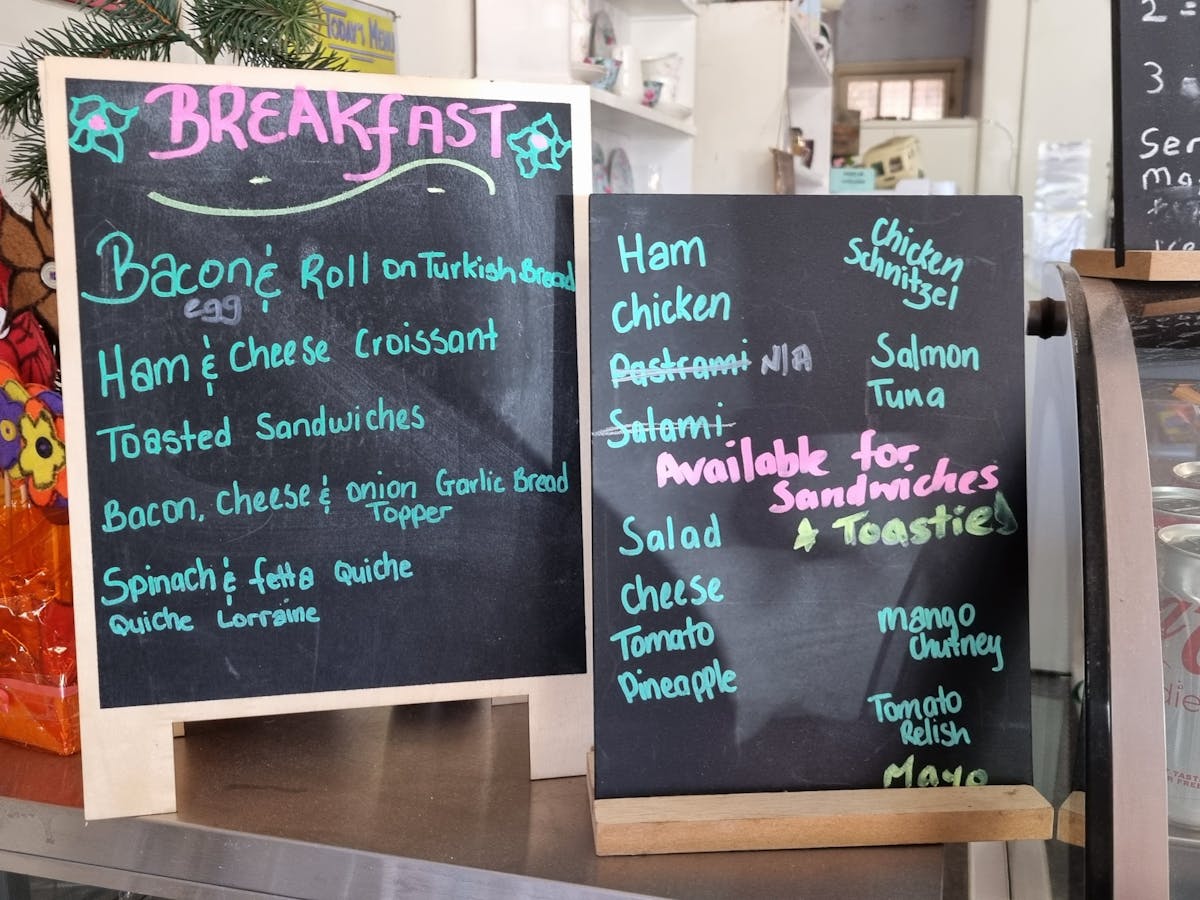 TODAY'S MENU
BREAKfAST
Bacon & Roll on Turkish Bread
egg
Ham & Cheese Croissant
Toasted Sandwiches
Bacon, cheese & onion Garlic Bread
Topper
Spinach & fetta Quiche
Quiche Lorraine
Ham
Chicken
Pastrami N/A
Salami
Chicken
Schnitzel
Salmon
Tuna
Available for
Sandwiches
+ Toasties
Salad
Cheese
Tomato
Pineapple
mango
Chutney
Tomato
Relish
Mayo
2 =
3
Ser
Ma